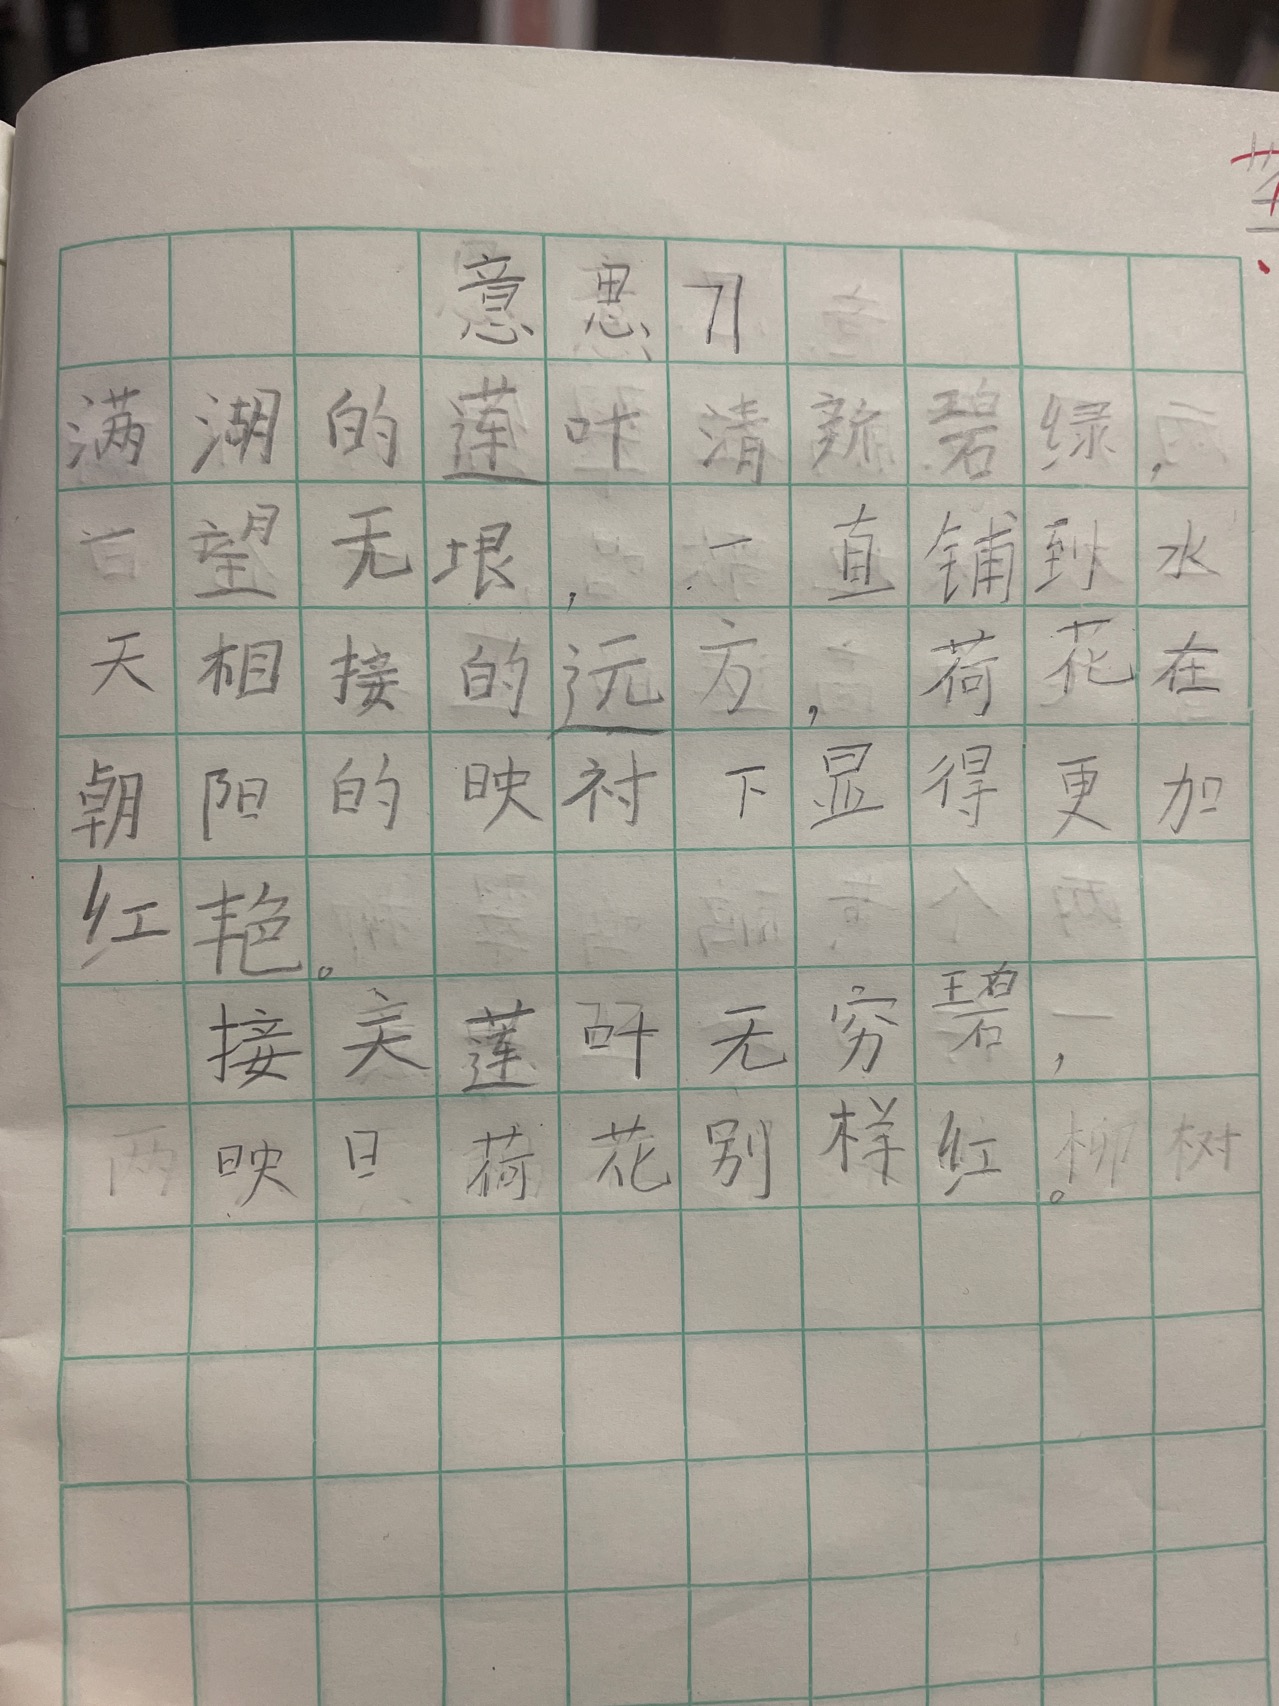 意思
满湖的莲叶清新碧绿，
一望无垠，一直铺到水
天相接的远方，荷花在
朝阳的映衬下显得更加
红艳。
接天莲叶无穷碧，
映日荷花别样红。